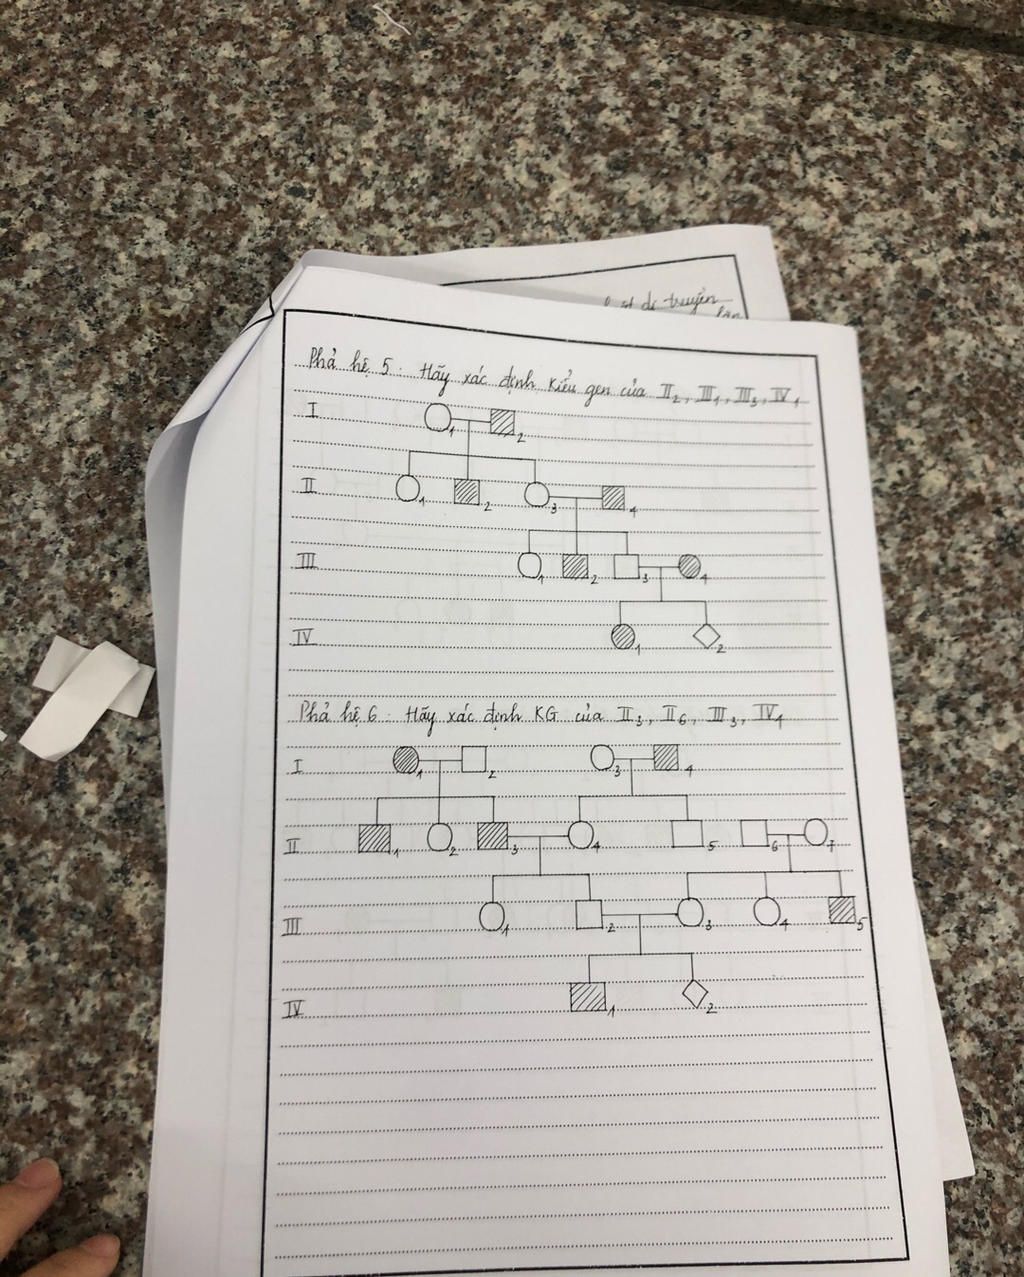 di truyền
Phả hệ 5. Hãy xác định kiểu gen của II2, III1, III3, IV1
I 1 2
II 1 2 3 4
III 1 2 3 4
IV 1 2
Phả hệ 6. Hãy xác định KG của II3, II6, III3, IV1
I 1 2 3 4
II 1 2 3 4 5 6 7
III 1 2 3 4 5
IV 1 2